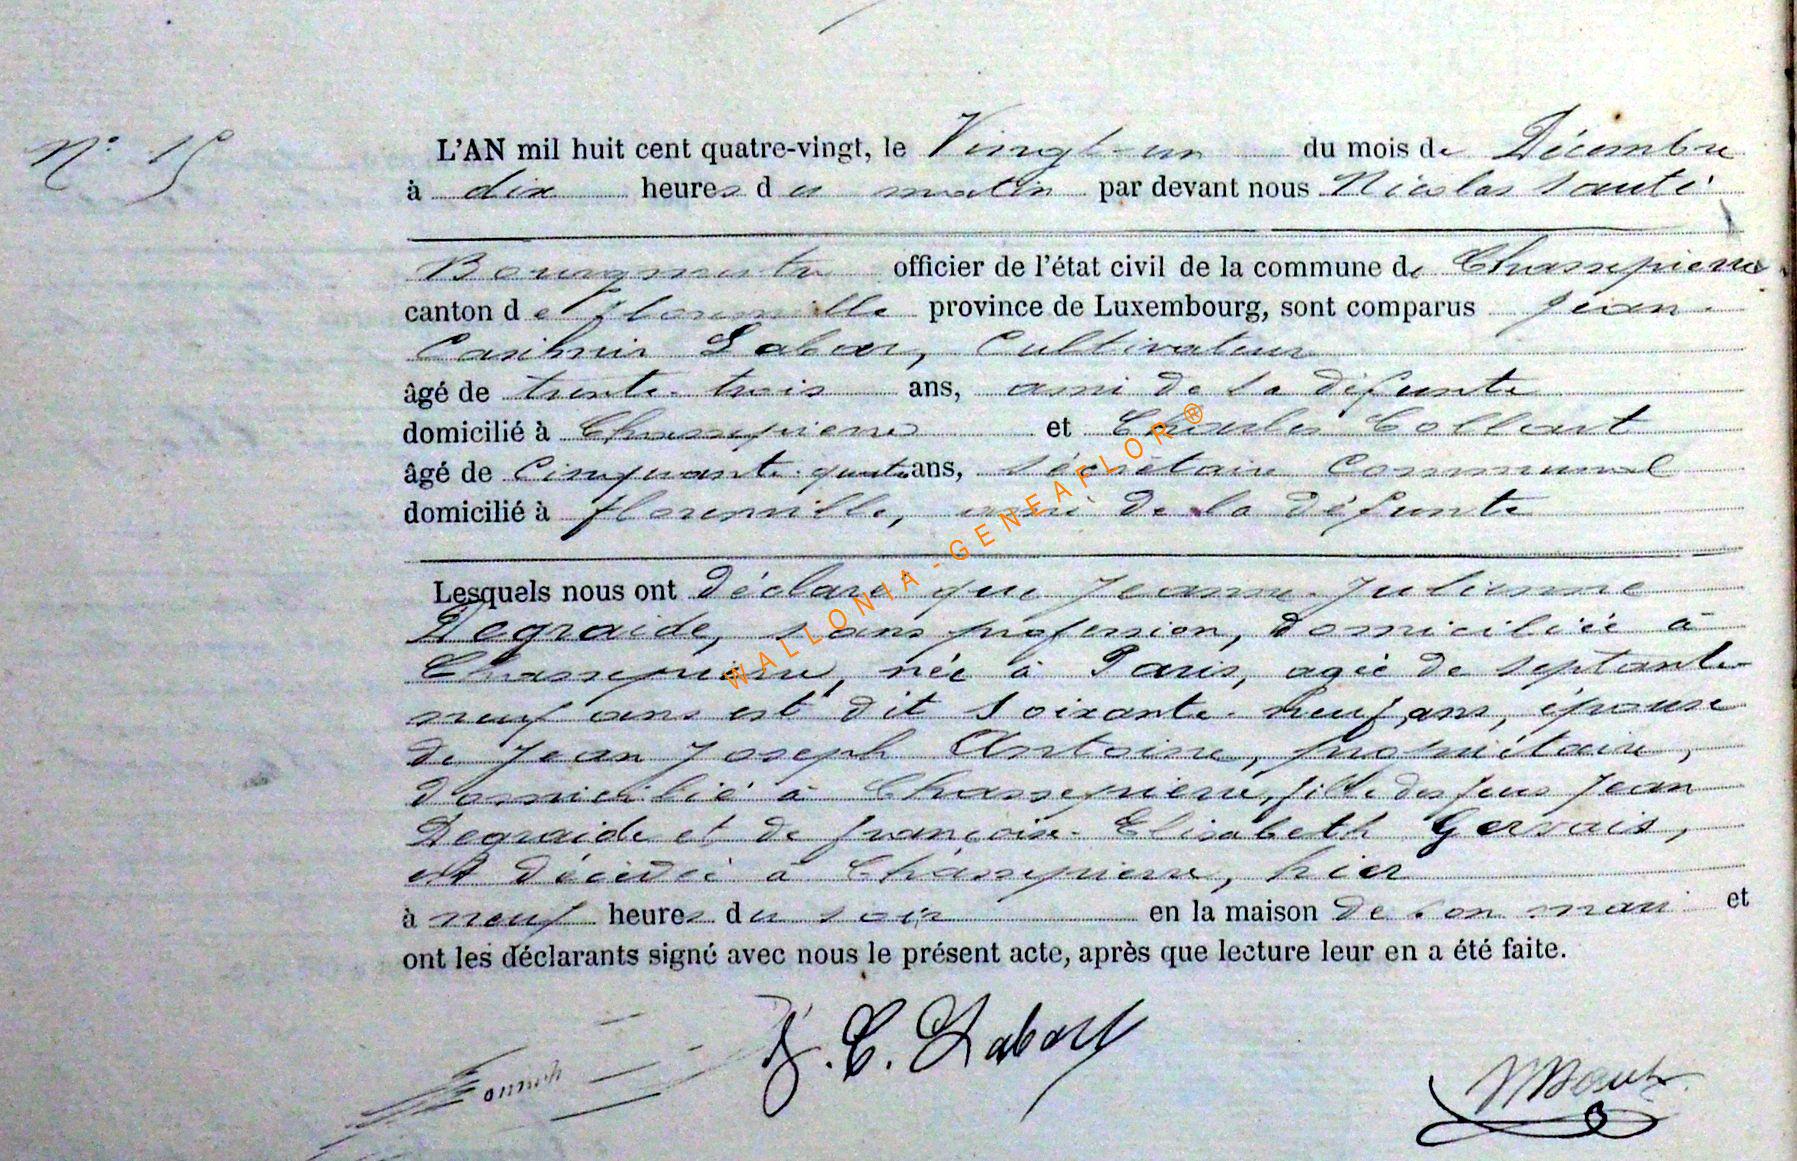 N° 15
L'AN mil huit cent quatre-vingt, le Vingt-un du mois de Décembre
à dix heures du matin par devant nous Nicolas Santé
Bourgmestre officier de l'état civil de la commune de Chassepierre
canton de florenville province de Luxembourg, sont comparus Jean
Casimir Labar, Cultivateur
âgé de trente-trois ans, ami de la défunte
domicilié à Chassepierre et Charles Collart
âgé de Cinquante-quatre ans, sécrétaire Communal
domicilié à florenville, ami de la défunte
Lesquels nous ont déclaré que Jeanne-Julienne
Degraide, sans profession, domiciliée à
Chassepierre, née à Paris, agée de septante-
neuf ans est dit soixante-neuf ans, épouse
de Jean Joseph Antoine, propriétaire,
domicilié à Chassepierre, fille des feus Jean
Degraide et de françoise-Elisabeth Gervais,
est décédée à Chassepierre, hier
à neuf heures du soir en la maison de son mari et
ont les déclarants signé avec nous le présent acte, après que lecture leur en a été faite.
J. C. Labar
WALLONIA-GENEAFLOR®